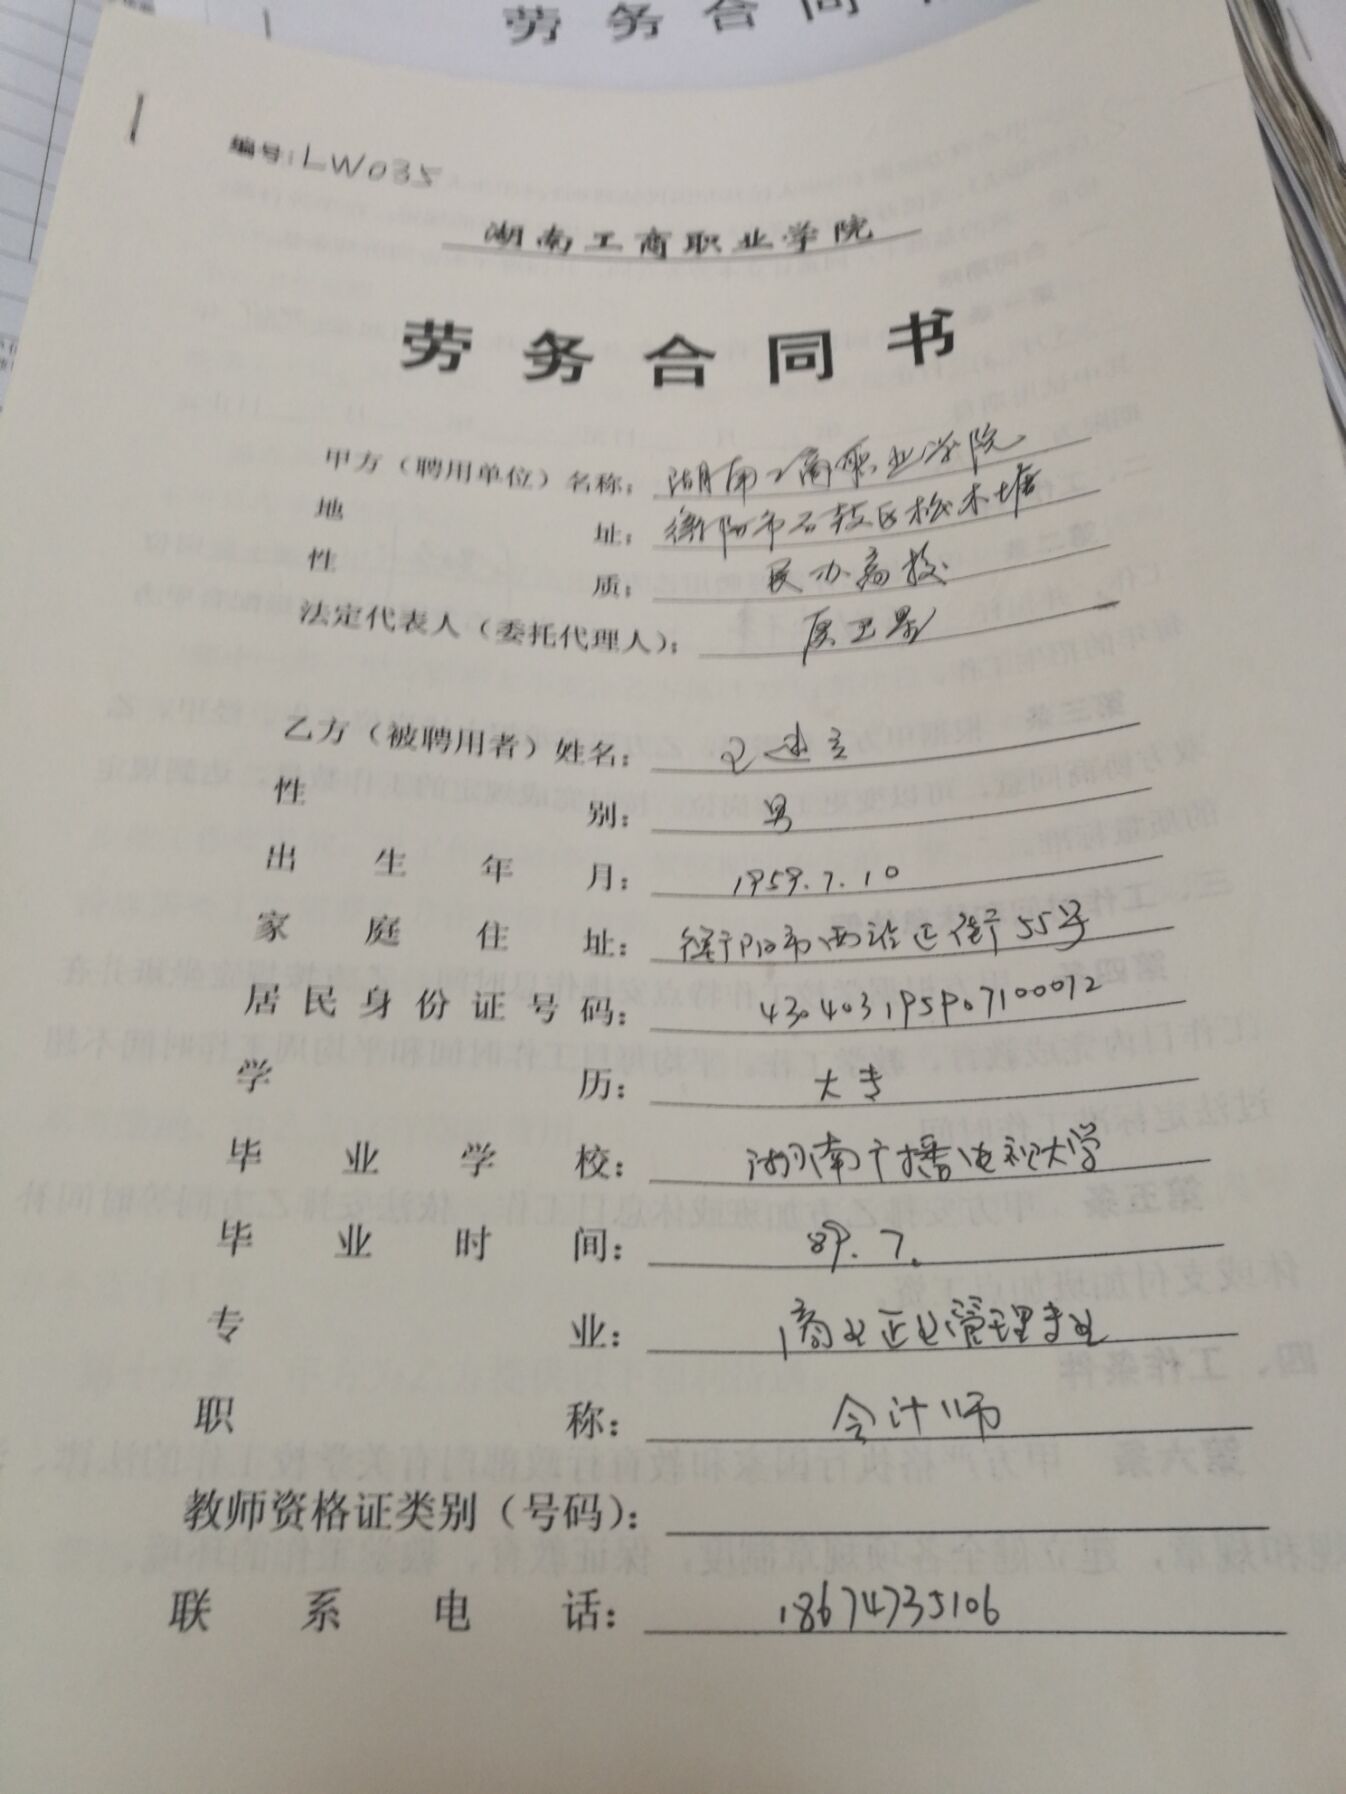 劳务合同
编号:LW035
湖南工商职业学院
劳务合同书
甲方（聘用单位）名称：湖南工商职业学院
地址：衡阳市石鼓区松木塘
性质：民办高校
法定代表人（委托代理人）：
乙方（被聘用者）姓名：
性别：男
出生年月：1959.7.10
家庭住址：衡阳市西站正街55号
居民身份证号码：430403195907100072
学历：大专
毕业学校：湖南广播电视大学
毕业时间：89.7.
专业：商业企业管理专业
职称：会计师
教师资格证类别（号码）：
联系电话：18674735106